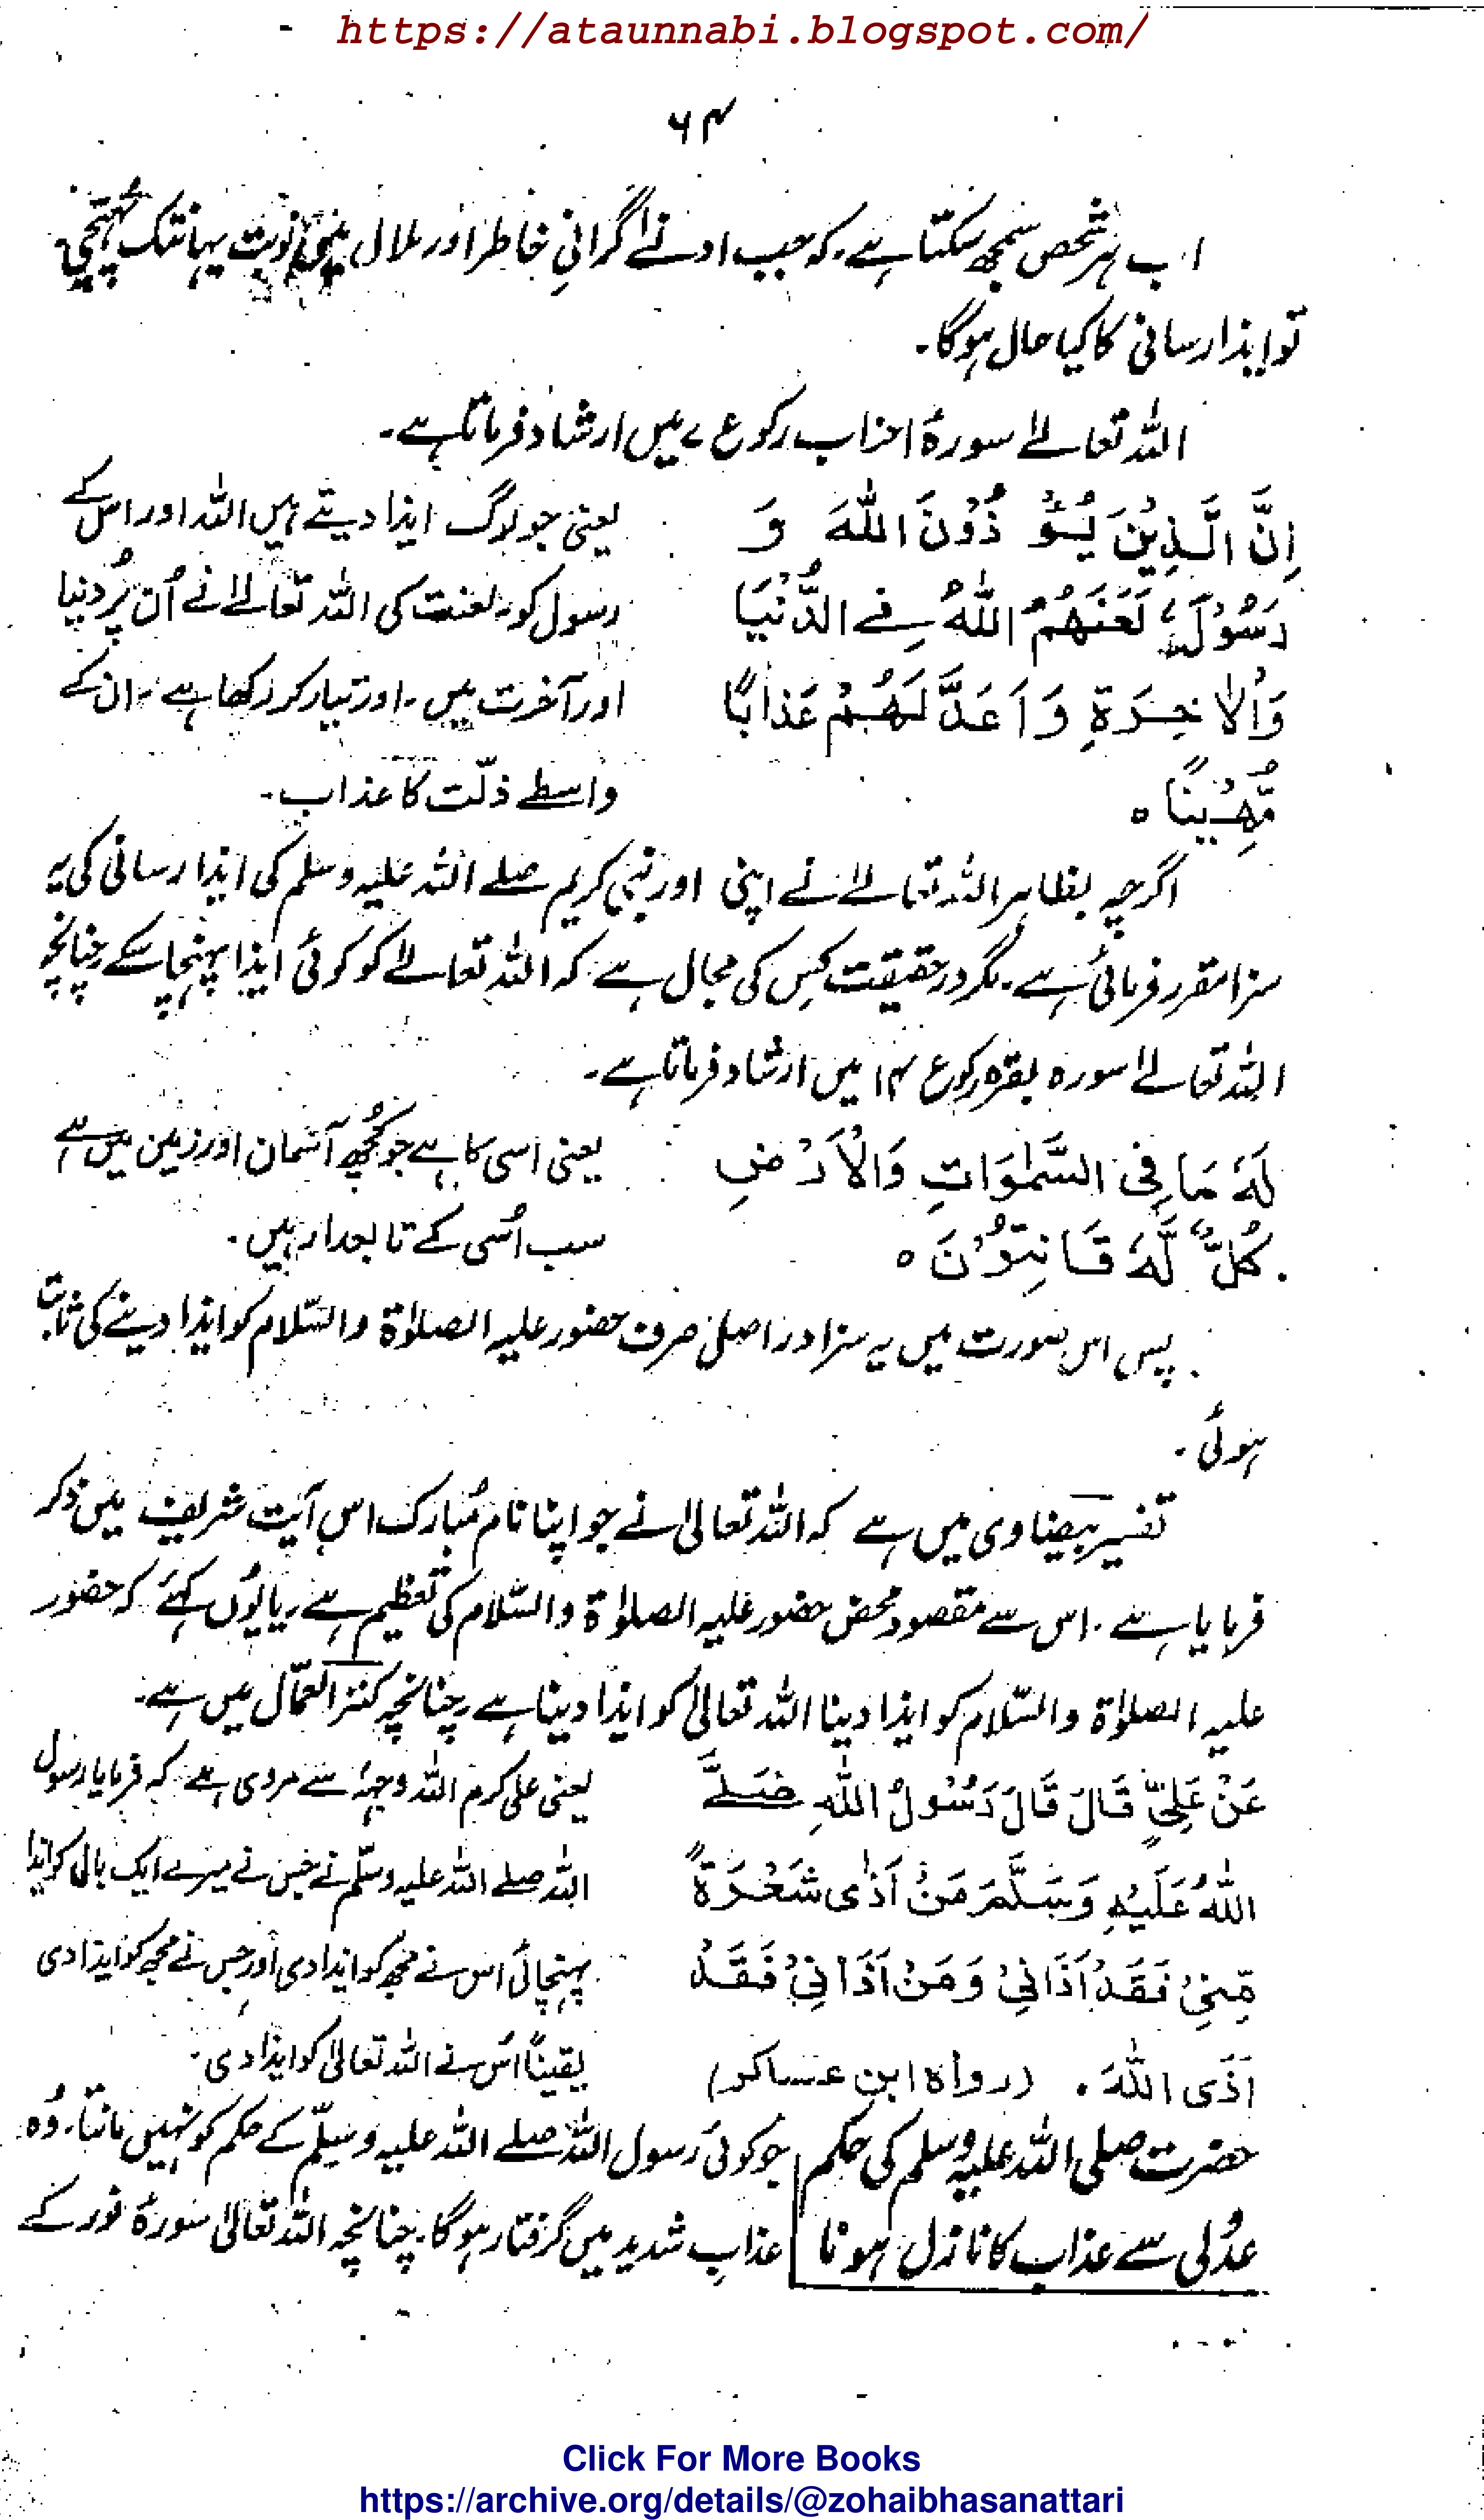 https://ataunnabi.blogspot.com/
۶۴
اب ہر شخص سمجھ سکتا ہے۔ کہ جب ادنےٰ گرانیِ خاطر اور ملال میں نوبت یہانتک پہنچی۔
تو ایذا رسانی کا کیا حال ہوگا۔
اللہ تعالےٰ سورۂ احزاب رکوع ۷ میں ارشاد فرماتا ہے۔
اِنَّ الَّذِیْنَ یُؤْذُوْنَ اللّٰهَ وَ
یعنی جو لوگ ایذا دیتے ہیں اللہ اور اس کے
رَسُوْلَہٗ لَعَنَهُمُ اللّٰهُ فِے الدُّنْیَا
رسول کو۔ لعنت کی اللہ تعالےٰ نے اُن پر دُنیا
وَالْاٰخِرَةِ وَاَعَدَّ لَهُمْ عَذَابًا
اور آخرت میں۔ اور تیار کر رکھا ہے۔ ان کے
مُّهِیْنًا ہ
واسطے ذلّت کا عذاب۔
اگرچہ بظاہر اللہ تعالےٰ نے اپنی اور نبی کریم صلے اللہ علیہ وسلم کی ایذا رسانی کی یہ
سزا مقرر فرمائی ہے۔ مگر درحقیقت کس کی مجال ہے۔ کہ اللہ تعالےٰ کو کوئی ایذا پہنچا سکے۔ چنانچہ
اللہ تعالےٰ سورہ بقرہ رکوع ۱۴ میں ارشاد فرماتا ہے۔
لَهٗ مَا فِی السَّمٰوَاتِ وَالْاَرْضِ
یعنی اسی کا ہے جو کُچھ آسمان اور زمین میں ہے
کُلٌّ لَّهٗ قَانِتُوْنَ ہ
سب اُسی کے تابعدار ہیں۔
پس اس صورت میں یہ سزا دراصل صرف حضور علیہ الصلوٰۃ والسّلام کو ایذا دینے کی ثابت
ہوئی۔
تفسیر بیضاوی میں ہے کہ اللہ تعالیٰ نے جو اپنا نام مُبارک اس آیت شریف میں ذکر
فرمایا ہے۔ اس سے مقصود محض حضور علیہ الصلوٰۃ والسّلام کی تعظیم ہے۔ یا یوں کہئے کہ حضور
علیہ الصلوٰۃ والسّلام کو ایذا دینا اللہ تعالیٰ کو ایذا دینا ہے۔ چنانچہ کنز العمّال میں ہے۔
عَنْ عَلِیٍّ قَالَ قَالَ رَسُوْلُ اللّٰهِ صَلَّے
یعنی علی کرم اللہ وجہہٗ سے مروی ہے۔ کہ فرمایا رسول
اللّٰهُ عَلَیْهِ وَسَلَّمَ مَنْ اَذٰی شَعْرَةً
اللہ صلے اللہ علیہ وسلّم نے جس نے میرے ایک بال کو ایذا
مِّنِیْ فَقَدْ اَذَانِیْ وَمَنْ اَذَانِیْ فَقَدْ
پہنچائی اس نے مجھ کو ایذا دی اور جس نے مجھ کو ایذا دی
اَذَی اللّٰهَ۔ (رواہ ابن عساکر)
یقیناً اُس نے اللہ تعالیٰ کو ایذا دی۔
حضرت صلی اللہ علیہ وسلم کی حکم
عدُولی سے عذاب کا نازل ہونا
جو کوئی رسول اللہ صلے اللہ علیہ وسلّم کے حکم کو نہیں مانتا۔ وُہ
عذابِ شدید میں گرفتار ہوگا۔ چنانچہ اللہ تعالیٰ سُورۂ نور کے
Click For More Books
https://archive.org/details/@zohaibhasanattari